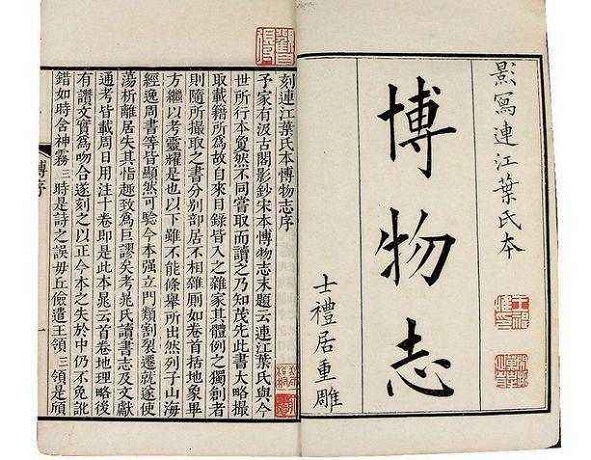 影寫連江葉氏本
博物志
士禮居重雕
刻連江葉氏本博物志序
予家有汲古閣影鈔宋本博物志末題云連江葉氏與今
世所行本敻然不同嘗取而讀之乃知茂先此書大略撮
取載籍所爲故自來目錄皆入之雜家其體例之獨創者
則隨所撮取之書分別部居不相雜廁如卷首括地象畢
方繼以考靈耀是也以下雖不能條舉所出然列子山海
經逸周書等皆顯然可驗今本强立門類割裂遷就遂使
蕩析離居失其指趣致爲巨謬矣考晁氏讀書志及文獻
通考皆載周日用注十卷卽是此本晁云首卷地理略後
有讚文實爲吻合遂刻之以正今本之失於中仍不免訛
錯如時含神霧三時是詩之誤毋丘儉遣王領三領是頎
博序
一